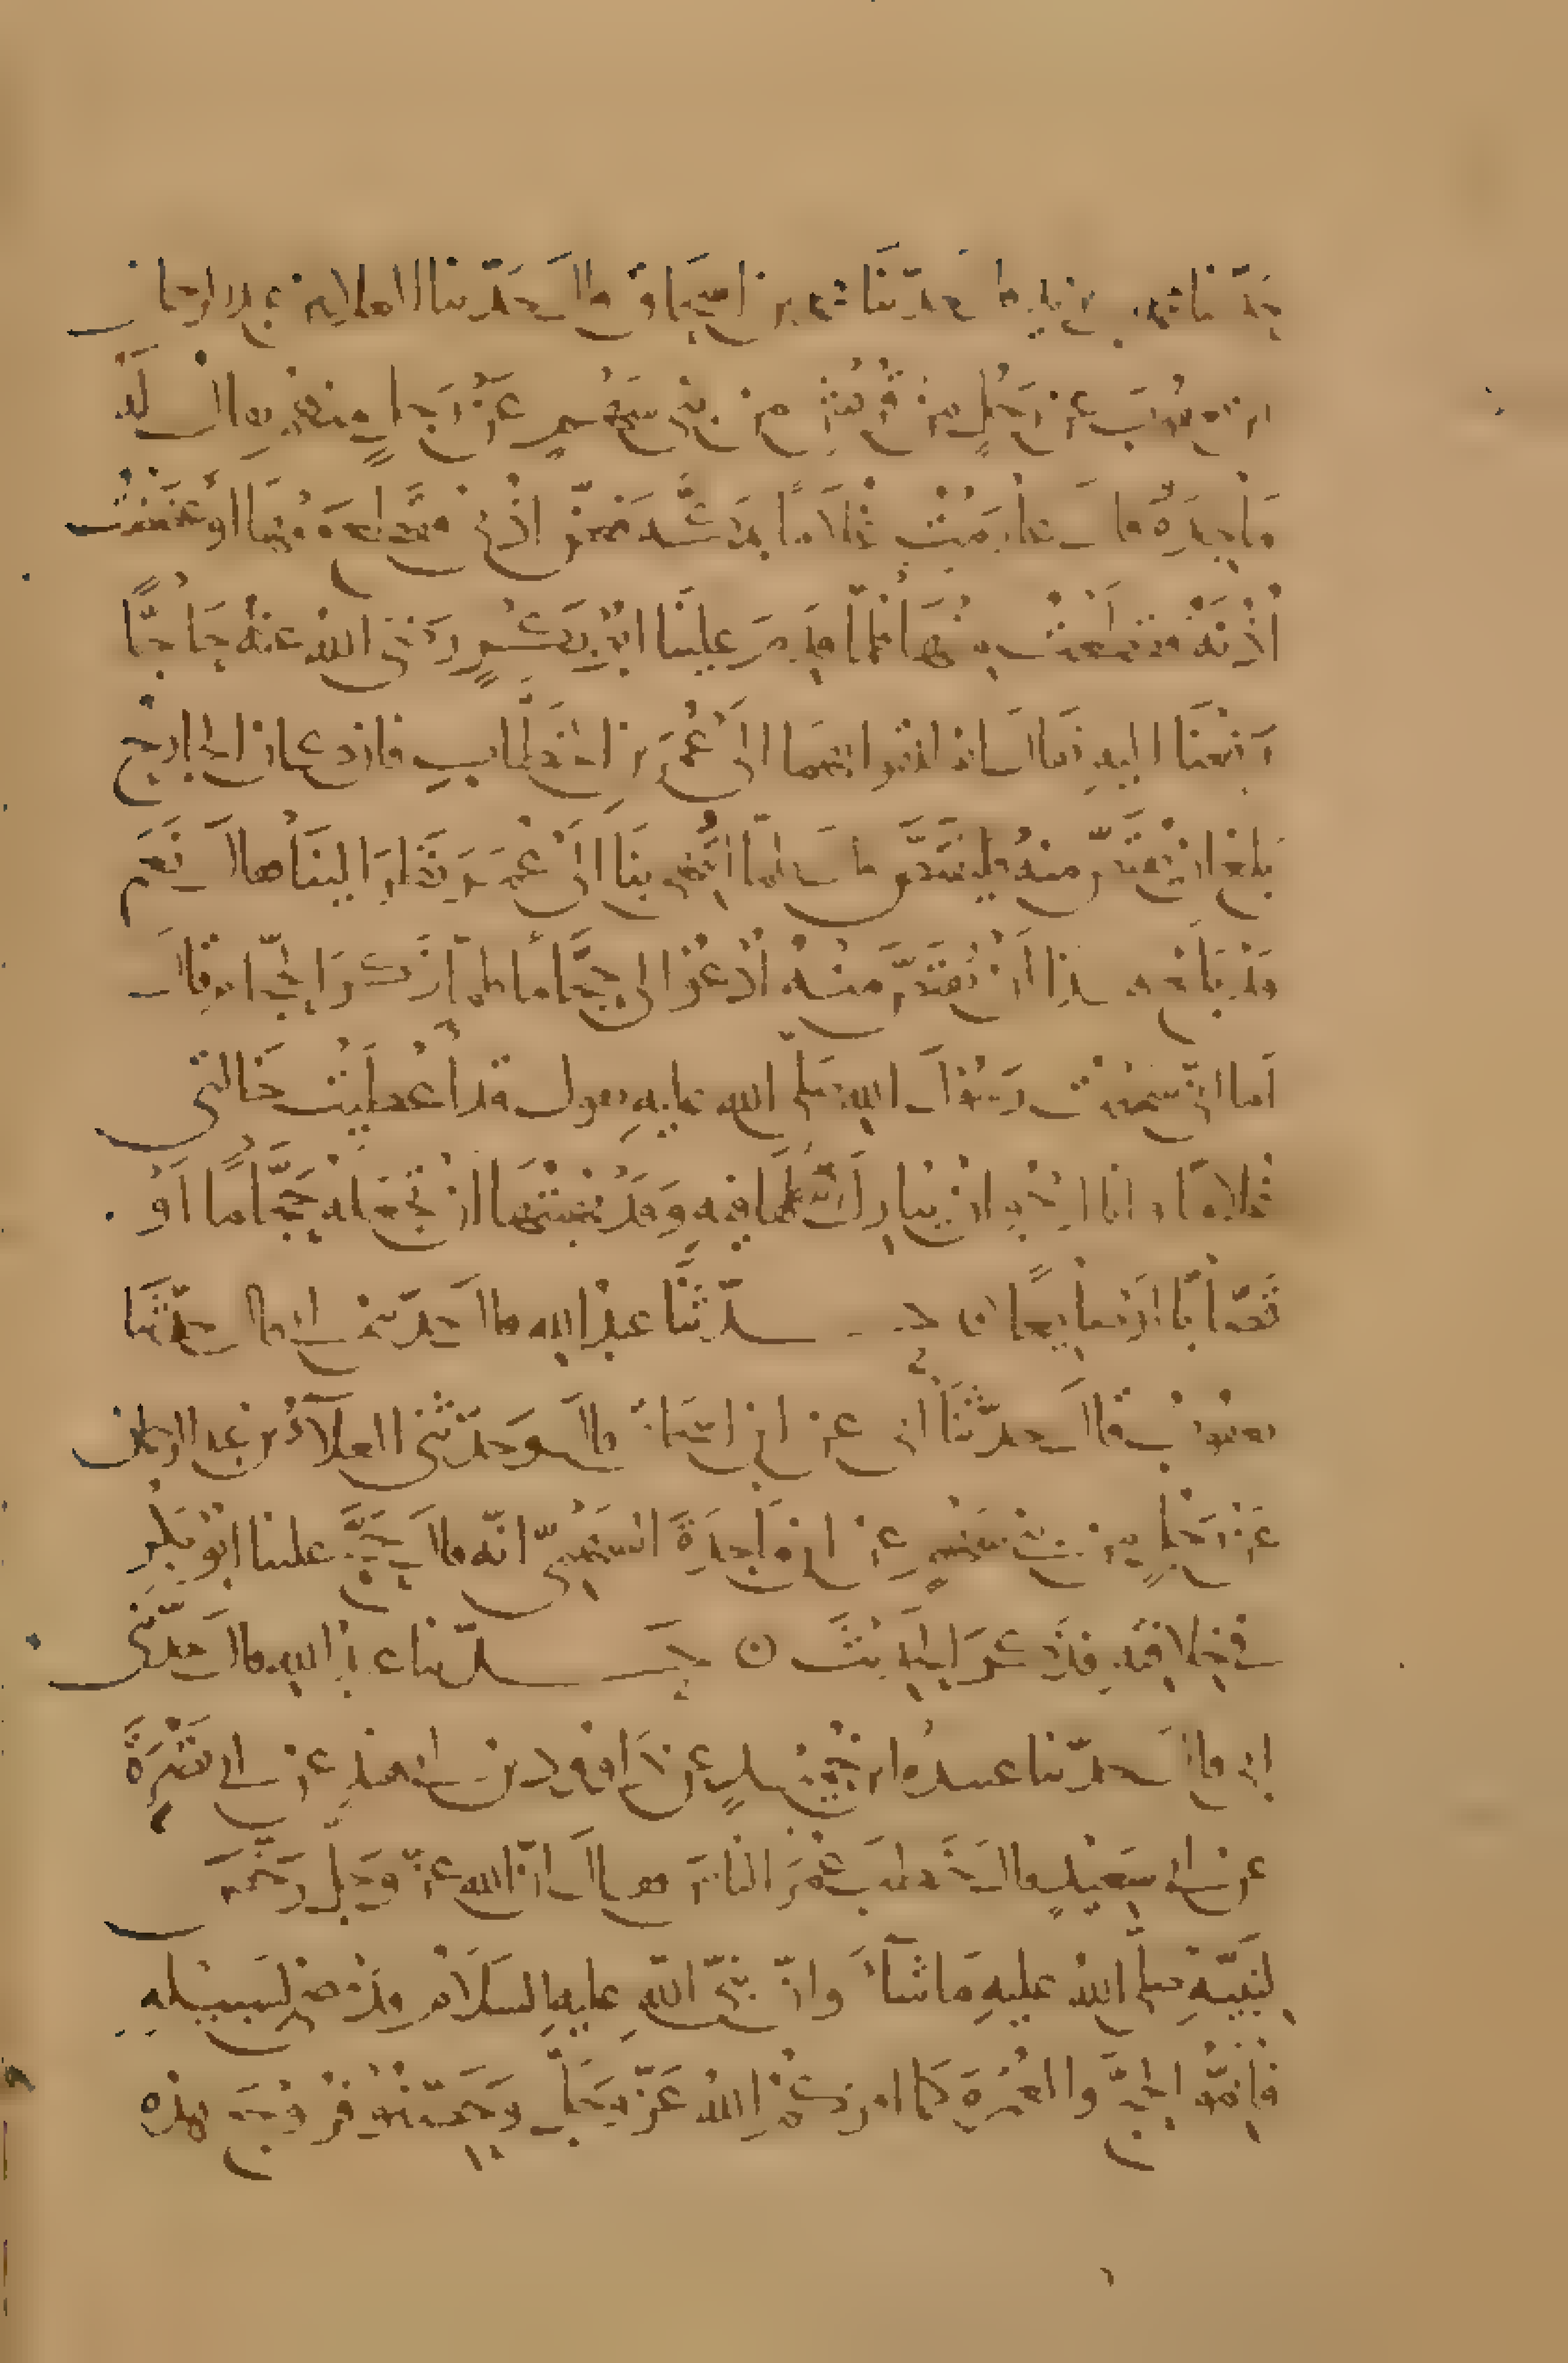 حدّثنا محمد بن يزيد قال حدّثنا محمد بن اسحاق قال حدّثنا العلاء بن عبد الرحمن
ابن يعقوب عن رجلٍ من قريش من بني سهمٍ عن رجلٍ منهم يقال له
ماجدة قال عارمت غلامًا بمكّة فعضّ اذني فقطع منها او عضضت
أذنه فقطعت منها فلمّا قدم علينا ابو بكرٍ رضي الله عنه حاجًّا
رفعنا اليه فقال انطلقوا بهما الى عمر بن الخطّاب فان كان الجارح
بلغ ان يقتصّ منه فليقتصّ قال فلمّا انتهي بنا الى عمر نظر الينا فقال نعم
قد بلغ هذا ان يقتصّ منه ادعوا لي حجّامًا فلمّا ذكر الحجّام قال
اما انّي سمعت رسول الله صلّى الله عليه يقول قد أعطيت خالتي
غلامًا وانا ارجو ان يبارك الله لها فيه وقد نهيتها ان تجعله حجّامًا او
قصّابًا او صايغًا ن حدّثنا عبد الله قال حدّثني ابي قال حدّثنا
يعقوب قال حدّثنا ابي عن ابن اسحاق قال وحدّثني العلاء بن عبد الرحمن
عن رجلٍ من بني سهمٍ عن ابن ماجدة السهميّ انّه قال حجّ علينا ابو بكر
في خلافته فذكر الحديث ن حدّثنا عبد الله قال حدّثني
ابي قال حدّثنا عبيدة بن حميدٍ عن داود بن ابي هندٍ عن ابي نضرة
عن ابي سعيدٍ قال خطب عمر الناس فقال انّ الله عزّ وجلّ رخّص
لنبيّه صلّى الله عليه ما شاء وانّ نبيّ الله عليه السلام قد مضى لسبيله
فأتمّوا الحجّ والعمرة كما امركم الله عزّ وجلّ وحصّنوا فروج هذه